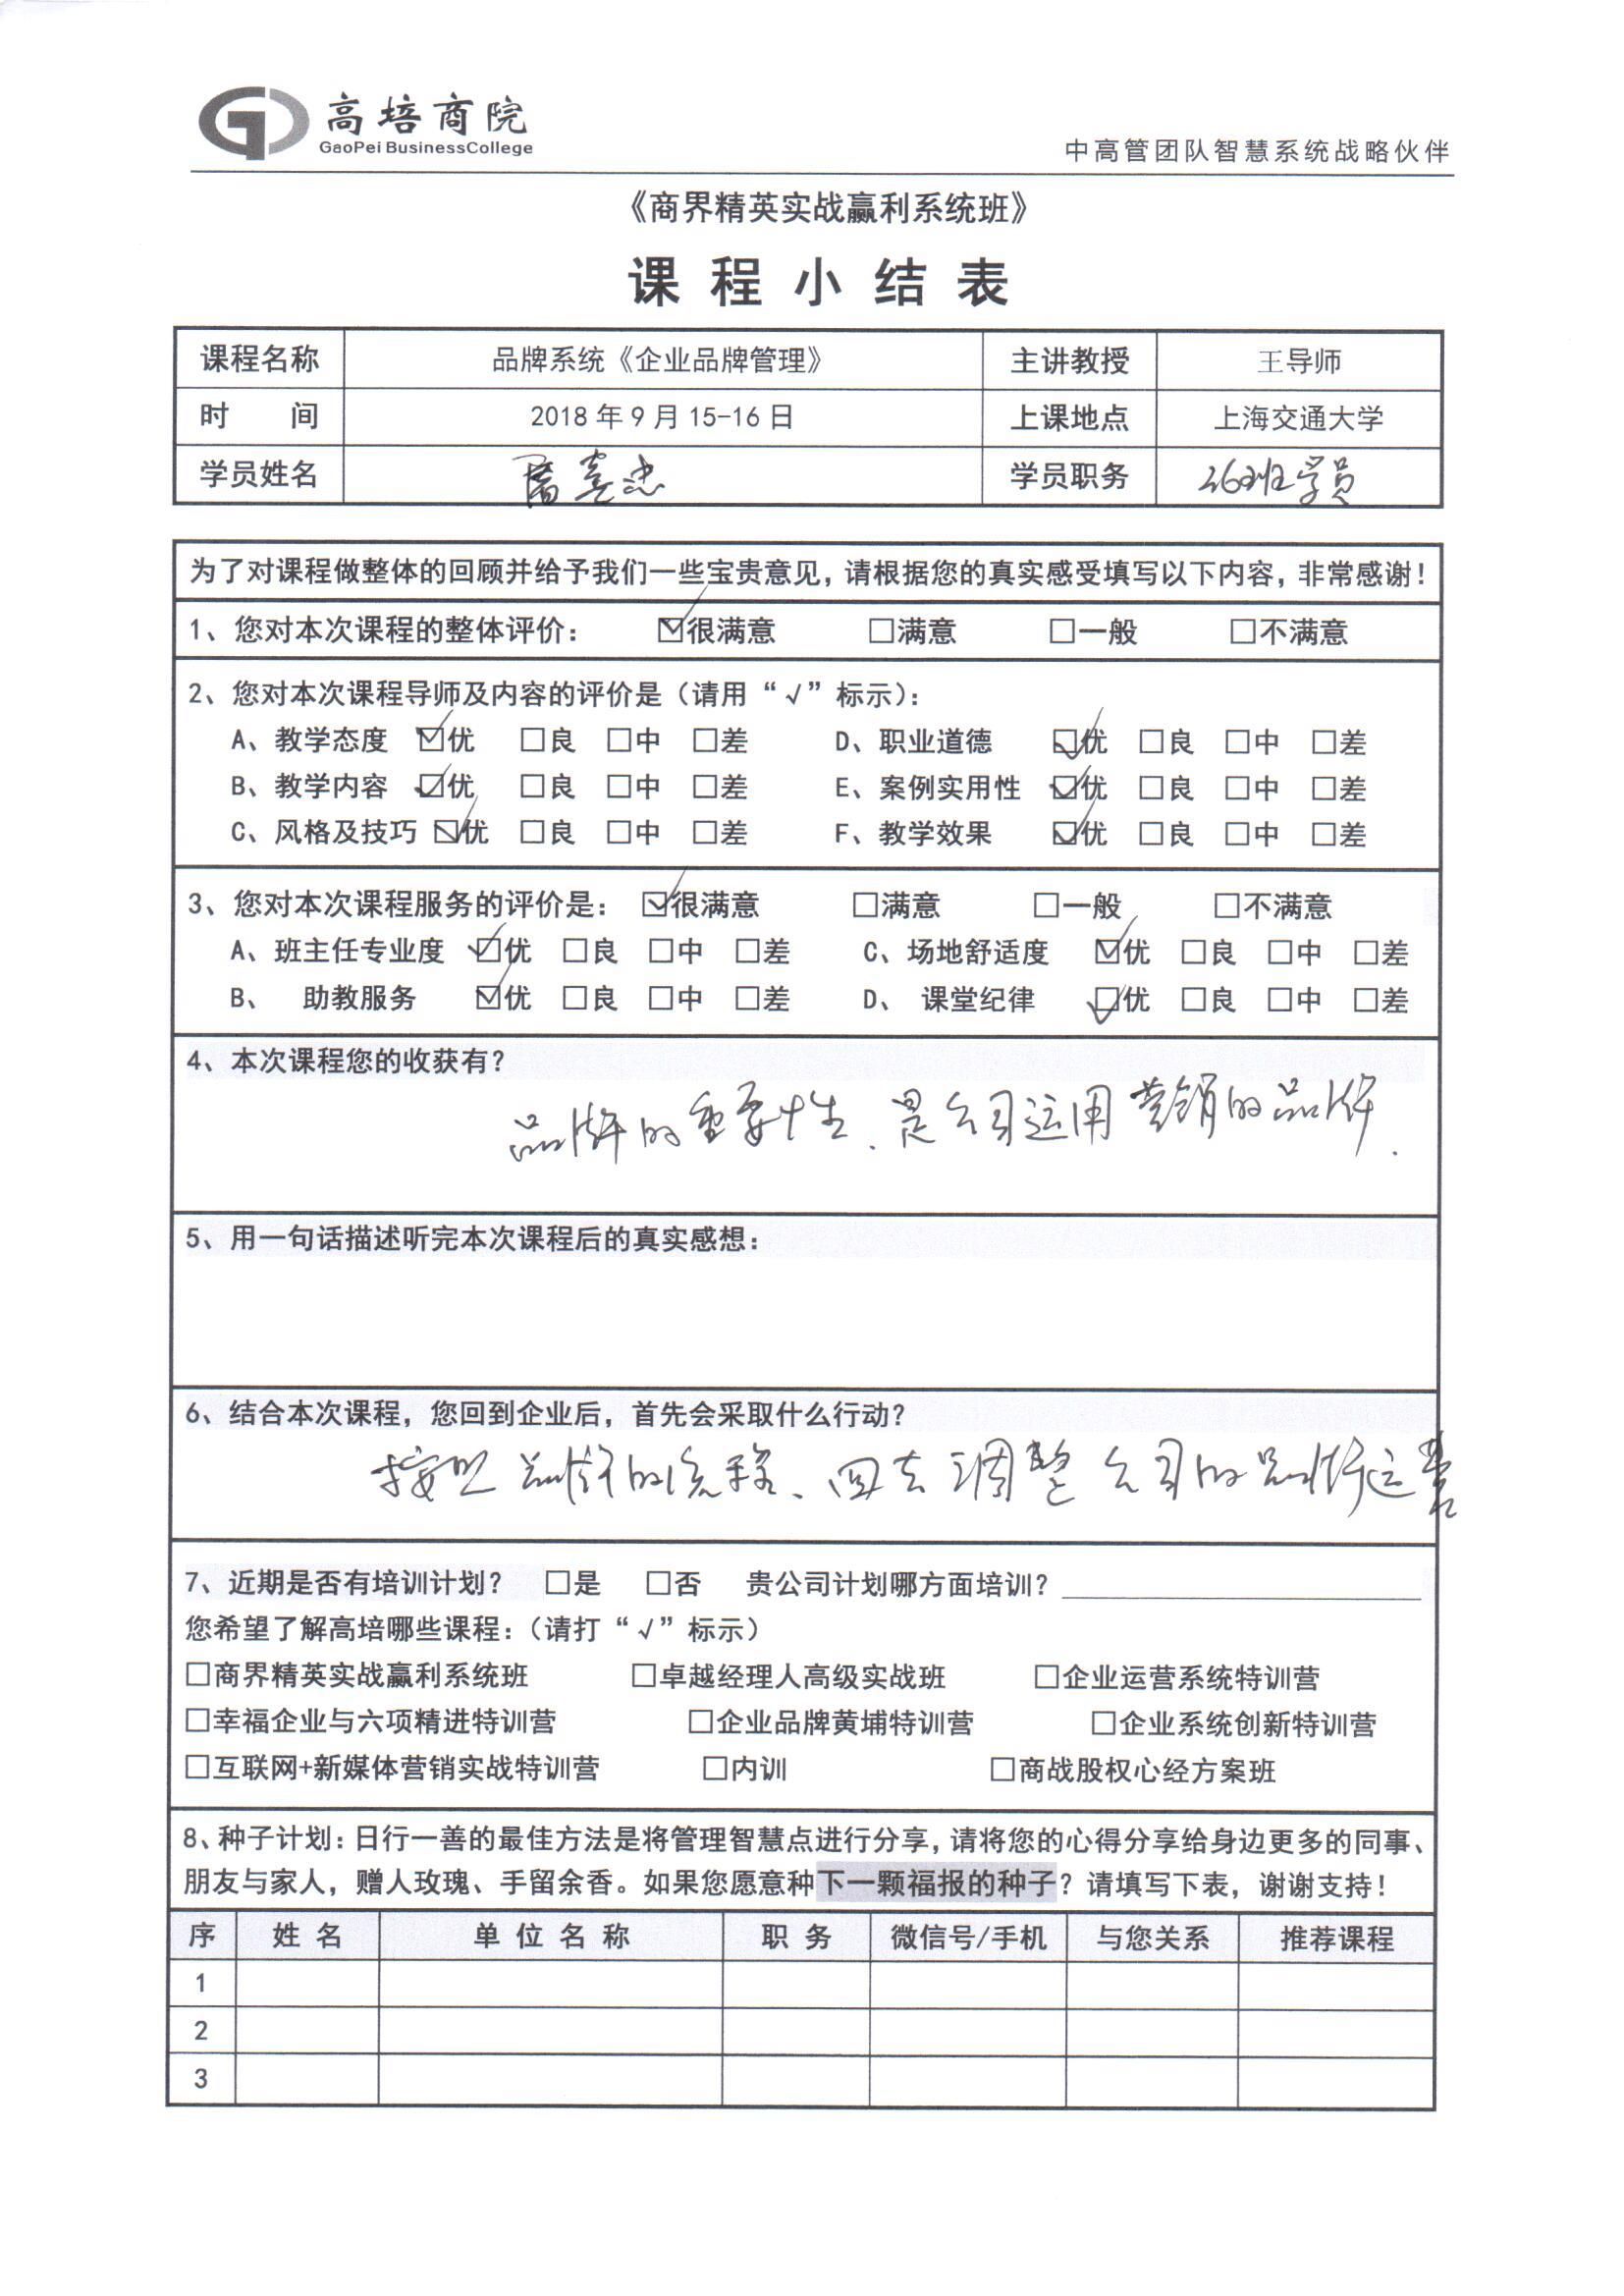 高培商院
GaoPei BusinessCollege
中高管团队智慧系统战略伙伴
《商界精英实战赢利系统班》
课程小结表
课程名称 品牌系统《企业品牌管理》 主讲教授 王导师
时 间 2018年9月15-16日 上课地点 上海交通大学
学员姓名 学员职务 26班学员
为了对课程做整体的回顾并给予我们一些宝贵意见，请根据您的真实感受填写以下内容，非常感谢！
1、您对本次课程的整体评价： ☑很满意 □满意 □一般 □不满意
2、您对本次课程导师及内容的评价是（请用“√”标示）：
A、教学态度 ☑优 □良 □中 □差 D、职业道德 ☑优 □良 □中 □差
B、教学内容 ☑优 □良 □中 □差 E、案例实用性 ☑优 □良 □中 □差
C、风格及技巧 ☑优 □良 □中 □差 F、教学效果 ☑优 □良 □中 □差
3、您对本次课程服务的评价是： ☑很满意 □满意 □一般 □不满意
A、班主任专业度 ☑优 □良 □中 □差 C、场地舒适度 ☑优 □良 □中 □差
B、 助教服务 ☑优 □良 □中 □差 D、 课堂纪律 ☑优 □良 □中 □差
4、本次课程您的收获有？
品牌的重要性、是公司运用营销的品牌.
5、用一句话描述听完本次课程后的真实感想：
6、结合本次课程，您回到企业后，首先会采取什么行动？
按照品牌的流程、回去调整公司的品牌运营
7、近期是否有培训计划？ □是 □否 贵公司计划哪方面培训？
您希望了解高培哪些课程：（请打“√”标示）
□商界精英实战赢利系统班 □卓越经理人高级实战班 □企业运营系统特训营
□幸福企业与六项精进特训营 □企业品牌黄埔特训营 □企业系统创新特训营
□互联网+新媒体营销实战特训营 □内训 □商战股权心经方案班
8、种子计划：日行一善的最佳方法是将管理智慧点进行分享，请将您的心得分享给身边更多的同事、
朋友与家人，赠人玫瑰、手留余香。如果您愿意种下一颗福报的种子？请填写下表，谢谢支持！
序 姓名 单位名称 职务 微信号/手机 与您关系 推荐课程
1
2
3